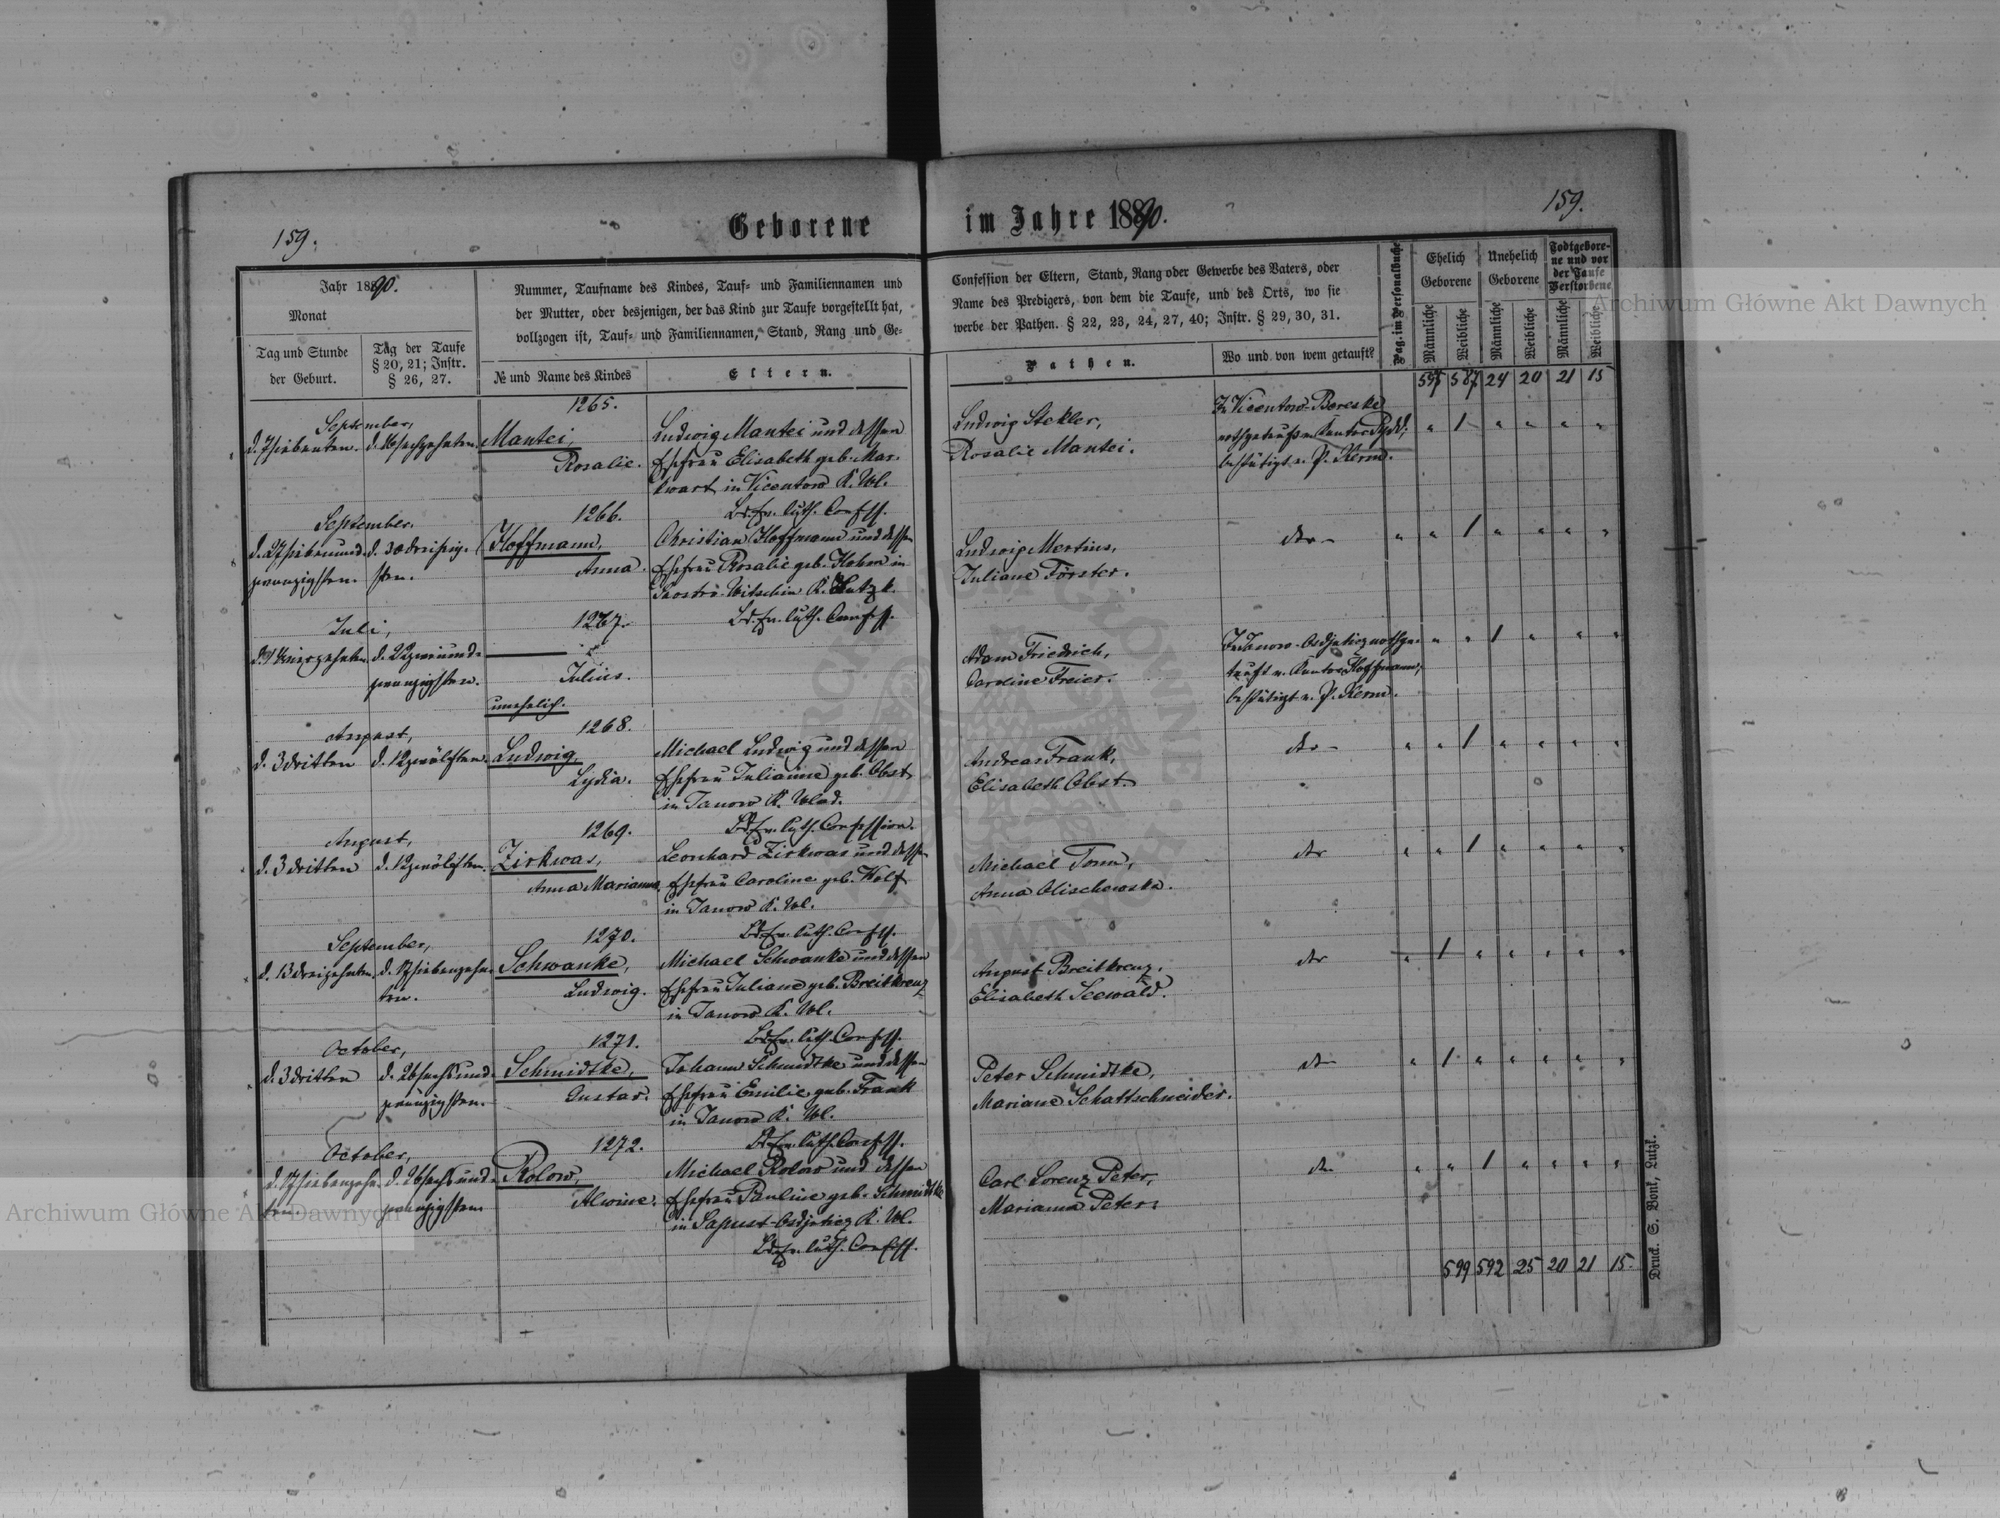 159.
Geborene
im Jahre 1890.
159.
Jahr 1890.
Monat
Tag und Stunde
der Geburt.
Tag der Taufe
§ 20, 21; Instr.
§ 26, 27.
Nummer, Taufname des Kindes, Tauf- und Familiennamen und
der Mutter, oder desjenigen, der das Kind zur Taufe vorgestellt hat,
vollzogen ist, Tauf- und Familiennamen, Stand, Rang und Ge-
№ und Name des Kindes
Eltern.
Confession der Eltern, Stand, Rang oder Gewerbe des Vaters, oder
Name des Predigers, von dem die Taufe, und des Orts, wo sie
werbe der Pathen. § 22, 23, 24, 27, 40; Instr. § 29, 30, 31.
Pathen.
Wo und von wem getauft?
Pag. im Personalbuche
Ehelich
Geborene
Unehelich
Geborene
Todtgebore-
ne und vor
der Taufe
Verstorbene
Männliche
Weibliche
Männliche
Weibliche
Männliche
Weibliche
587 24 20 21 15
1265.
September,
d. 7 siebenten. d. 16 sechzehnten.
Mantei,
Rosalie.
Ludwig Mantei und dessen
Ehefrau Elisabeth geb. Mar-
kwart in Vicentow K. Wl.
Ludwig Stekler,
Rosalie Mantei.
bestätigt v. P. Kerm.
1266.
Bd. ev. luth. Confess.
September.
d. 27 siebenund- d. 30 dreißig-
zwanzigsten. sten.
Hoffmann,
Anna.
Christian Hoffmann und dessen
Ehefrau Rosalie geb. Hohm in
Ludwig Mertins,
Juliane Förster.
1267.
Bd. ev. luth. Confess.
Juli,
d. 14 vierzehnten d. 22 zweiund-
zwanzigsten.
Julius.
unehelich.
Adam Friedrich,
Caroline Freier.
tauft v. Kantor Hoffmann;
bestätigt v. P. Kerm.
1268.
August,
d. 3 dritten d. 12 zwölften
Ludwig,
Lydia.
Michael Ludwig und dessen
Ehefrau Julianne geb. Obst
in Janow K. Wlad.
Andreas Frank,
Elisabeth Obst.
1269.
Bd. ev. luth. Confession.
August,
d. 3 dritten d. 12 zwölften
Zirkwas,
Anna Marianna.
Leonhard Zirkwas und dessen
Ehefrau Caroline geb. Wolf
in Janow K. Wl.
Michael Tonn,
Anna Olischewska.
1270.
Bd. ev. luth. Confess.
September,
d. 13 dreizehnten d. 17 siebenzehn-
ten.
Schwanke,
Ludwig.
Michael Schwanke und dessen
Ehefrau Juliane geb. Breitkreuz
in Janow K. Wl.
August Breitkreuz,
Elisabeth Seewald.
1271.
Bd. ev. luth. Confess.
October,
d. 3 dritten d. 26 sechsund-
zwanzigsten.
Schmidtke,
Gustav.
Johann Schmidtke und dessen
Ehefrau Emilie geb. Frank
in Janow K. Wl.
Peter Schmidtke,
Mariane Schattschneider.
1272.
Bd. ev. luth. Confess.
October,
d. 17 siebenzehn- d. 26 sechsund-
ten zwanzigsten
Rolow,
Alwine.
Michael Rolow und dessen
Ehefrau Pauline geb. Schmidtke
in Sapust-Osdjuticz K. Wl.
Bd. ev. luth. Confess.
Carl Lorenz Peter,
Marianna Peter.
599 592 25 20 21 15
Druck. S. Bonk, Lutzk.
Archiwum Główne Akt Dawnych
Archiwum Główne Akt Dawnych